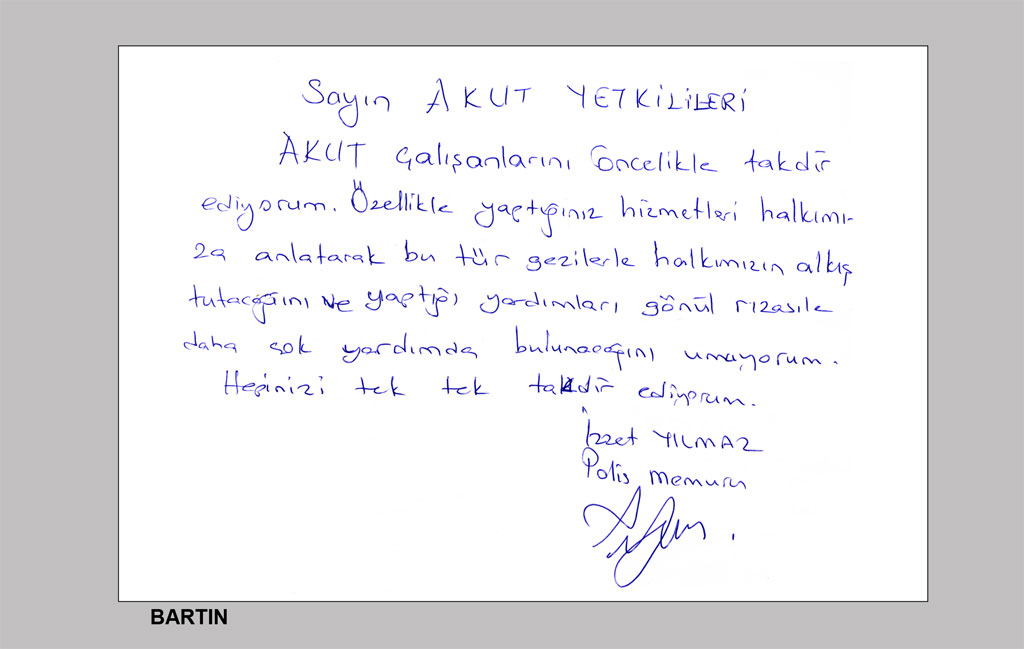 Sayın AKUT YETKİLİLERİ
AKUT çalışanlarını öncelikle takdir
ediyorum. Özellikle yaptığınız hizmetleri halkımı-
za anlatarak bu tür gezilerle halkımızın alkış
tutacağını ve yaptığı yardımları gönül rızasıle
daha çok yardımda bulunacağını umuyorum.
Hepinizi tek tek takdir ediyorum.
İzzet YILMAZ
Polis memuru
BARTIN